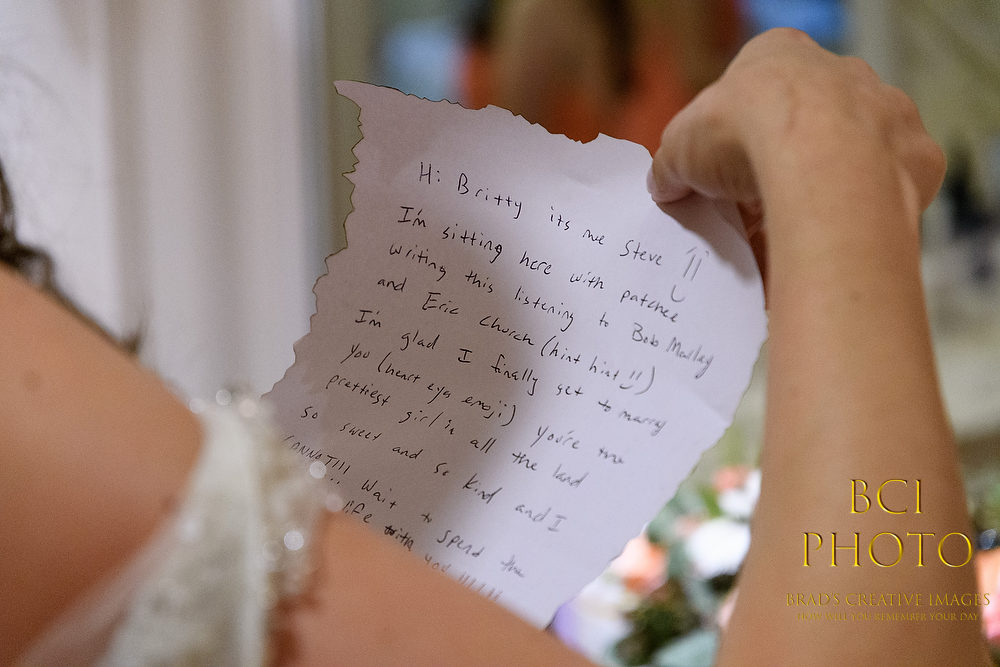 Hi Britty its me Steve
I'm sitting here with patches
writing this listening to Bob Marley
and Eric Church (hint hint !!)
I'm glad I finally get to marry
you (heart eyes emoji) you're the
prettiest girl in all the land
so sweet and so kind and I
CANNOT!!! wait to spend the
life with you!!!!!!
BCI
PHOTO
BRAD'S CREATIVE IMAGES
HOW WILL YOU REMEMBER YOUR DAY